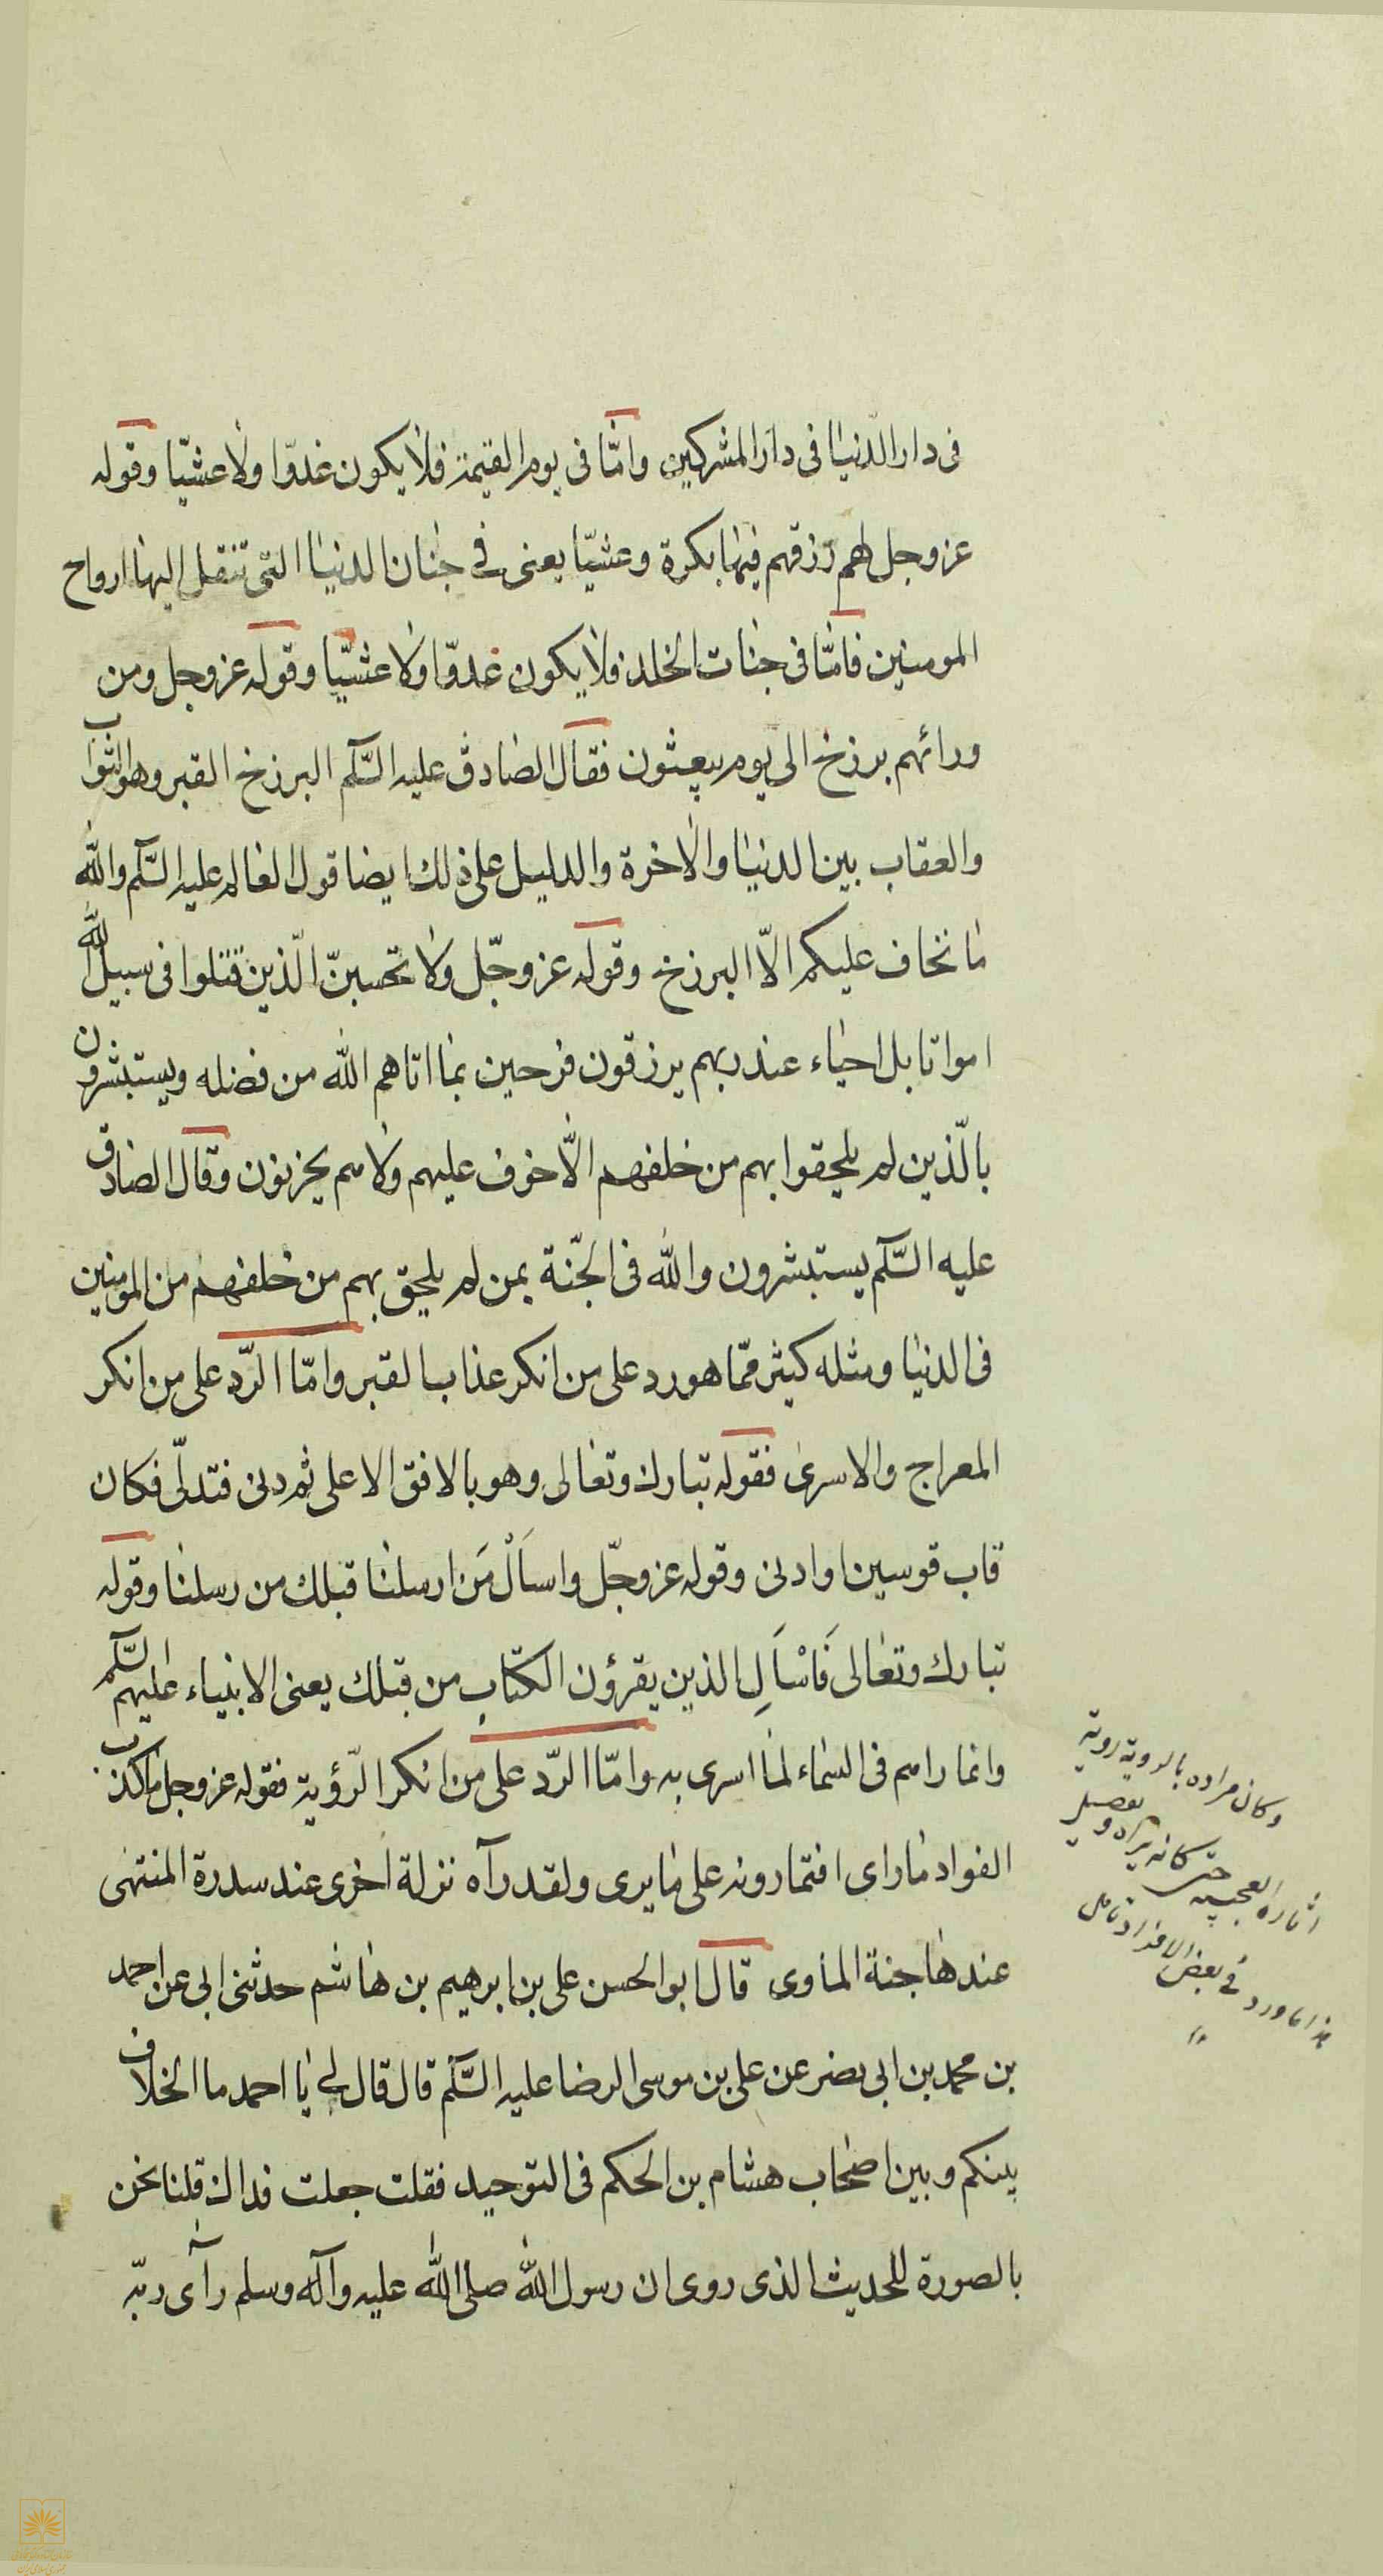 فى دار الدّنيا فى دار المشركين وامّا فى يوم القيمة فلا يكون غدوّا ولا عشيّا وقوله
عز وجل لهم رزقهم فيها بكرة وعشيّا يعنى فى جنان الدنيا التى تنقل اليها ارواح
المومنين فامّا فى جنات الخلد فلا يكون غدوّا ولا عشيّا وقوله عز وجل ومن
ورائهم برزخ الى يوم يبعثون فقال الصادق عليه السّلم البرزخ القبر وهو الثواب
والعقاب بين الدنيا والاخرة والدليل على ذلك ايضا قول العالم عليه السّلم والله
ما نخاف عليكم الاّ البرزخ وقوله عز وجّل ولا تحسبنّ الّذين قتلوا فى سبيل الله
امواتا بل احياء عند ربهم يرزقون فرحين بما اتاهم الله من فضله ويستبشرون
بالّذين لم يلحقوا بهم من خلفهم الّا خوف عليهم ولا هم يحزنون وقال الصادق
عليه السّلم يستبشرون والله فى الجّنة بمن لم يلحق بهم من خلفهم من المومنين
فى الدنيا ومثله كثير ممّا هو رد على من انكر عذاب القبر وامّا الرّد على من انكر
المعراج والاسرى فقوله تبارك وتعالى وهو بالافق الاعلى ثم دنى فتدلّى فكان
قاب قوسين او ادنى وقوله عز وجّل واسَالْ مَن ارسلنا قبلك من رسلنا وقوله
تبارك وتعالى فَاسْاَلِ الذين يقرؤن الكتاب من قبلك يعنى الانبياء عليهم السّلم
وانما راهم فى السماء لما اسرى به وامّا الرّد على من انكر الرّؤية فقوله عز وجل ماكذب
الفواد ما راى افتمارونه على ما يرى ولقد رآه نزلة اخرى عند سدرة المنتهى
عندها جنة الماوى قال ابو الحسن على بن ابرهيم بن هاشم حدثنى ابى عن احمد
بن محمد بن ابى بصر عن على بن موسى الرضا عليه السّلم قال قال لى يا احمد ما الخلاف
بينكم وبين اصحاب هشام بن الحكم فى التوحيد فقلت جعلت فداك قلنا نحن
بالصورة للحديث الذى روى ان رسول الله صلى الله عليه وآله وسلم رآى ربّه
وكان مراده بالروية روية
اثاره العجيبه حتى كانه يراه
هذا ما ورد فى بعض